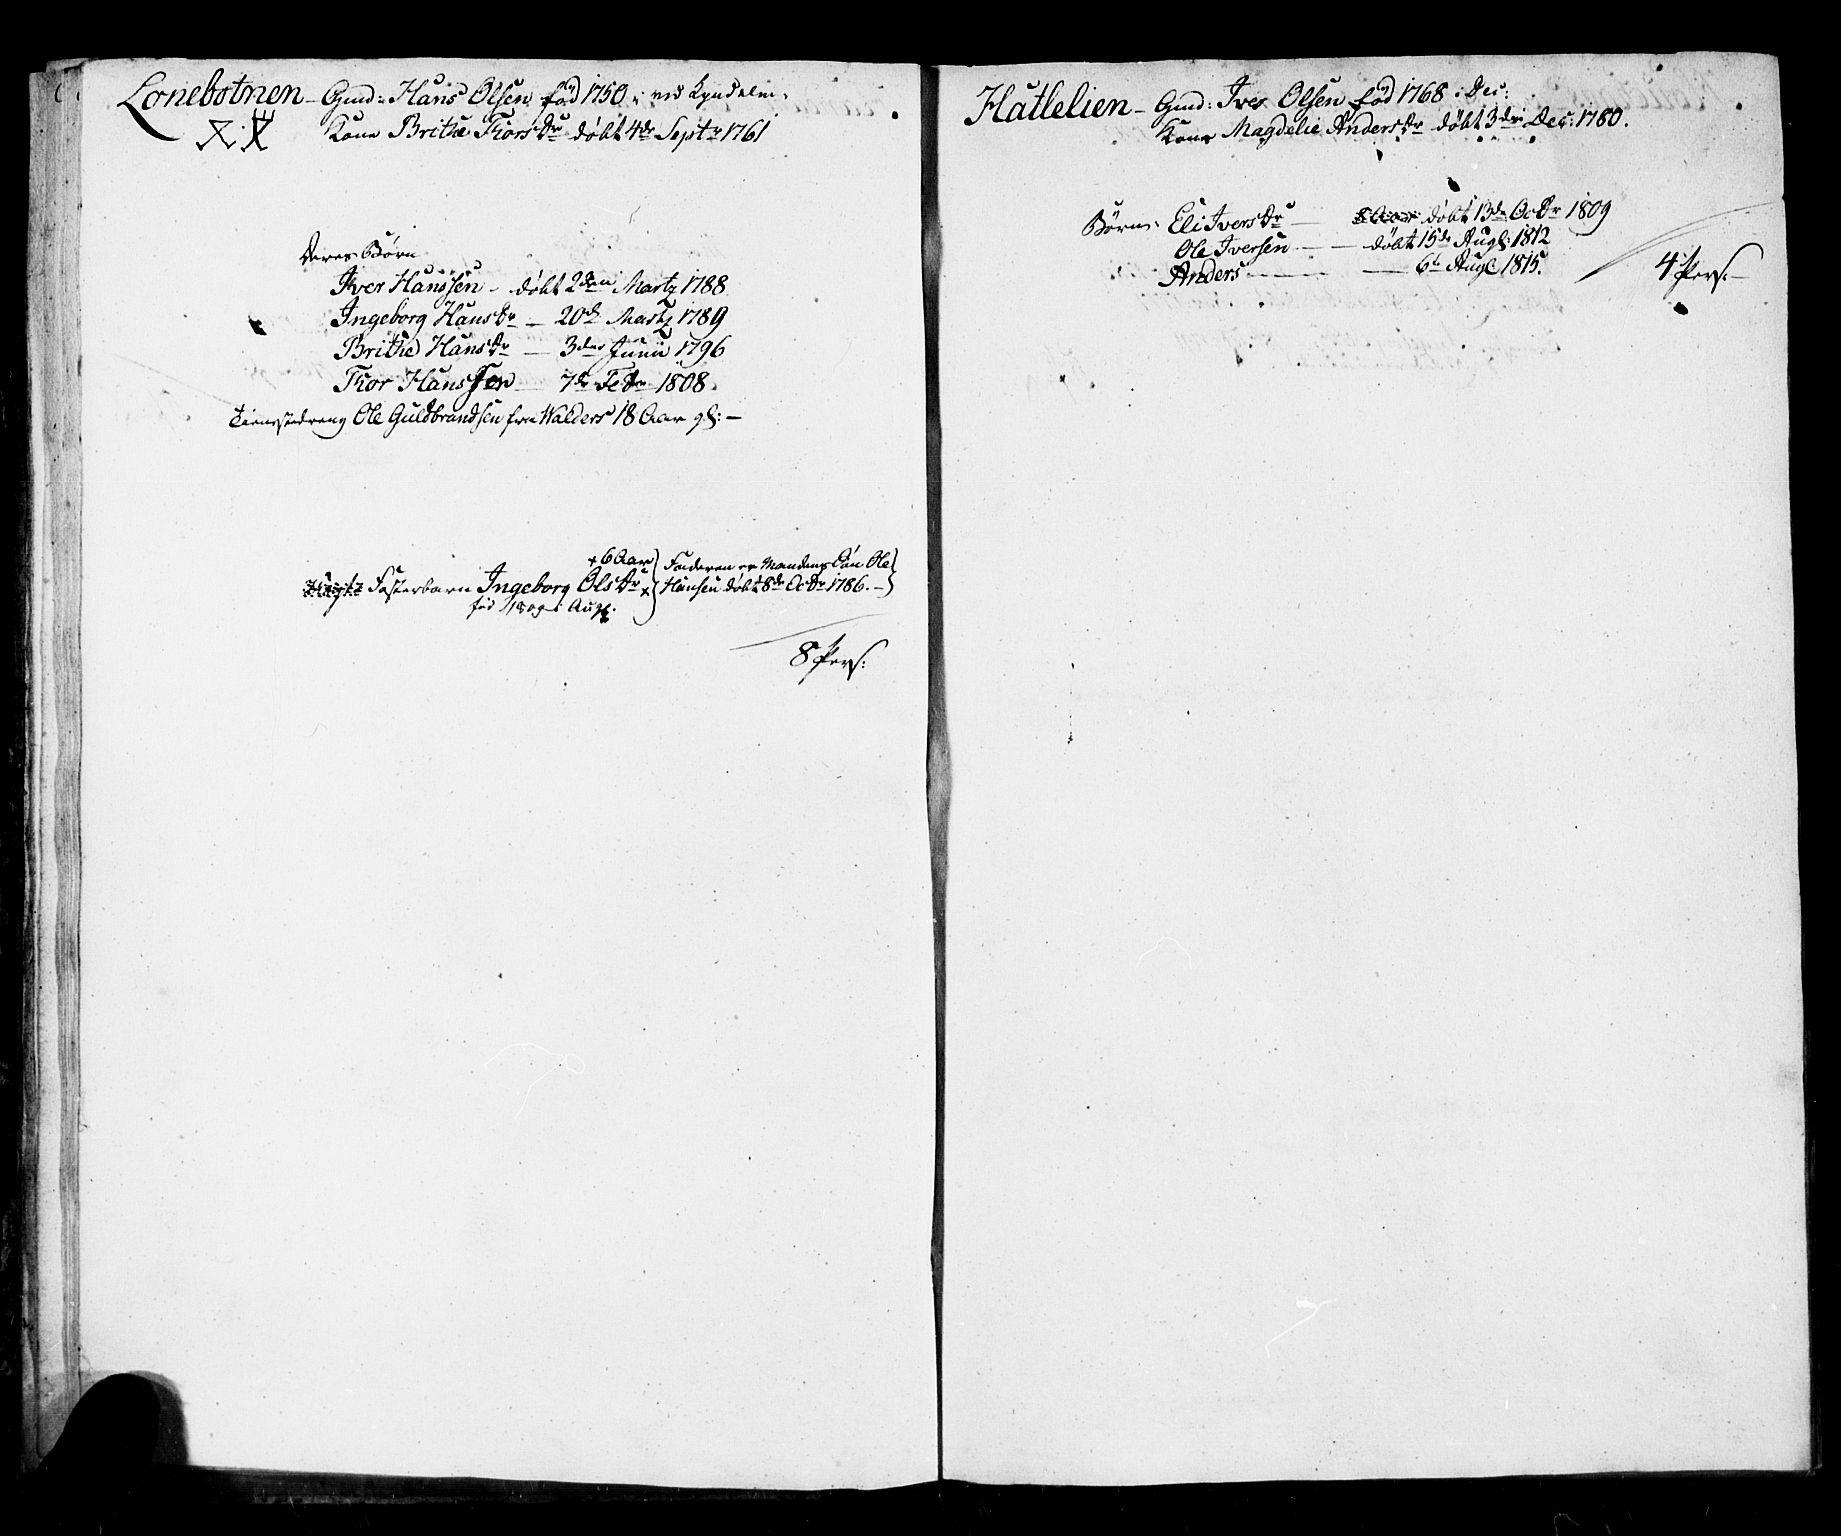 Lonebotnen - Gmd: Hans Olsen fød 1750 : ved Kyndelm:
Kone Brithe Tiorsdr døbt 4de Septr 1761
Deres Børn
Iver Hanssen - døbt 2den Martz 1788
Ingeborg Hansdr - 20de Martz 1789
Brithe Hansdr - 3die Junii 1796
Tior Hanssen - 7de Febr 1808
Tienestedreng Ole Guldbrandsen fra Walders 18 Aar gl: -
+ 6 Aar
Fosterbarn Ingeborg Olsdr x
fød 1809 i Aug:
Faderen er Mandens Søn Ole
Hansen døbt 8de Octbr 1786. -
8 Pers:
Hatlelien - Gmd: Iver Olsen fød 1768 i Dec:
Kone Magdelie Andersdr døbt 3die Dec: 1780.
Børn: Eli Iversdr - døbt 13de Octbr 1809
Ole Iversen - - døbt 15de Aug: 1812
Anders - - 6te Aug: 1815.
4 Pers: -